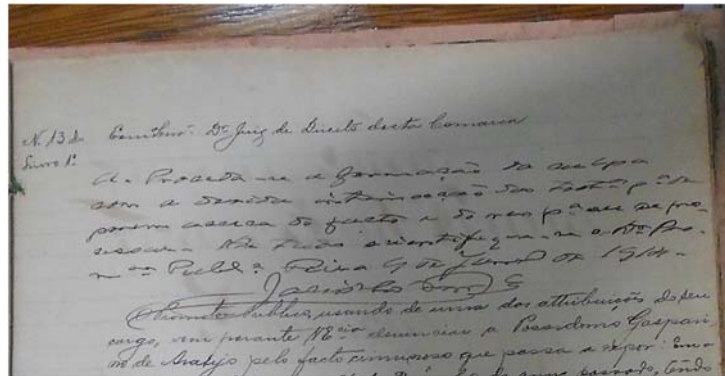 N. 13 do
Livro 1º
Exmº Snr. Dr. Juiz de Direito desta Comarca
A. Proceda-se a formação da culpa
com a devida intimação das test.
porem acerca do facto e do reo pª se ver pro-
cessar. De tudo scientifique-se o Dr. Pro-
Publ. 9 de de 1914.
O Promotor Publico, usando de uma das attribuições do seu
cargo, vem perante V. Ex.cia denunciar a Possidonio Gaspari-
no de Araujo pelo facto criminoso que passa a expor: Em
do anno passado, tendo